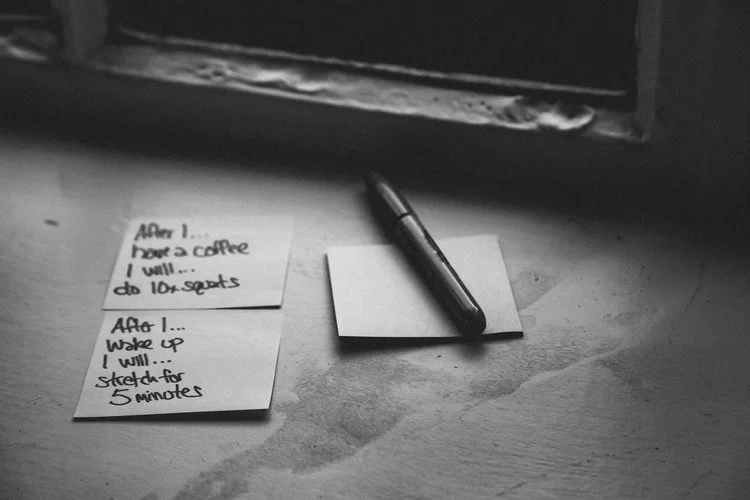 After I...
have a coffee
I will...
do 10x squats
After I...
wake up
I will...
stretch for
5 minutes